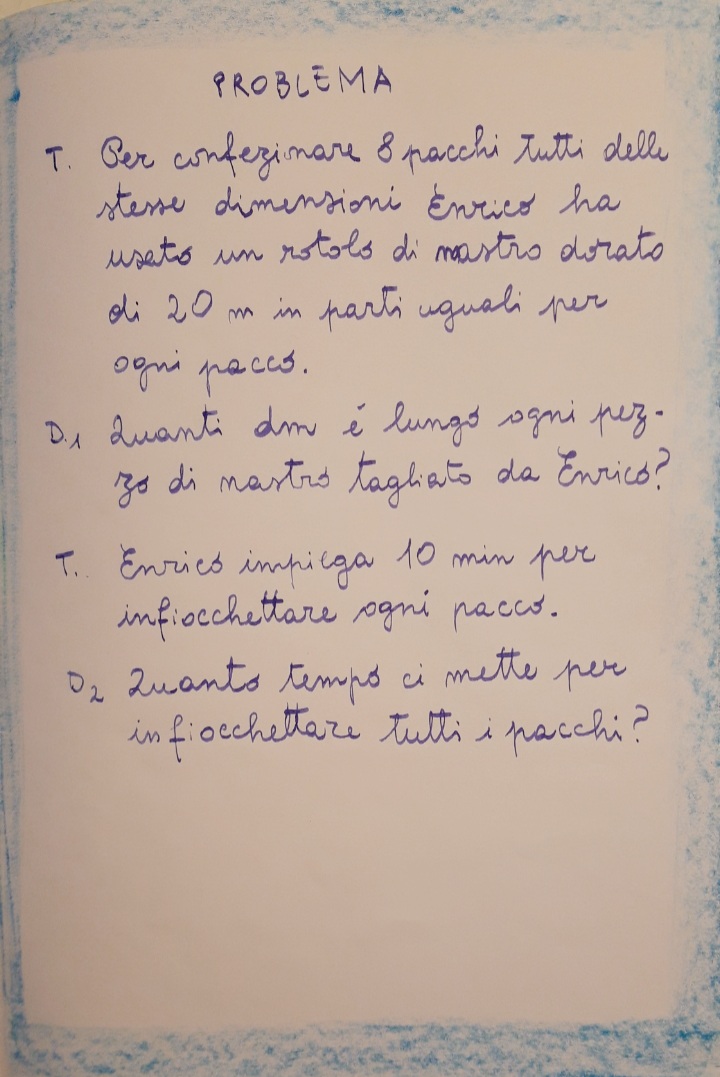 PROBLEMA
T. Per confezinare 8 pacchi tutti delle
stesse dimensioni Enrico ha
usato un rotolo di nastro dorato
di 20 m in parti uguali per
ogni pacco.
D.1 Quanti dm é lungo ogni pez-
zo di nastro tagliato da Enrico?
T.. Enrico impiega 10 min per
infiocchettare ogni pacco.
D2 Quanto tempo ci mette per
infiocchettare tutti i pacchi?